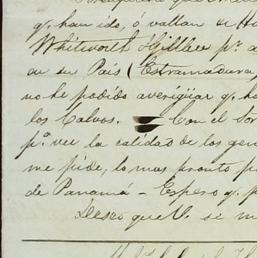 q. han ido, ó vallan de
Whitworth Hillier p.ª
en su Pais (Estramadura
no he podido averigüar q. ha
los Calvos. Con el Sor
p.ª ver la calidad de los gen
me pide, lo mas pronto p
de Panamá - Espero q. p
Deseo que V. se m